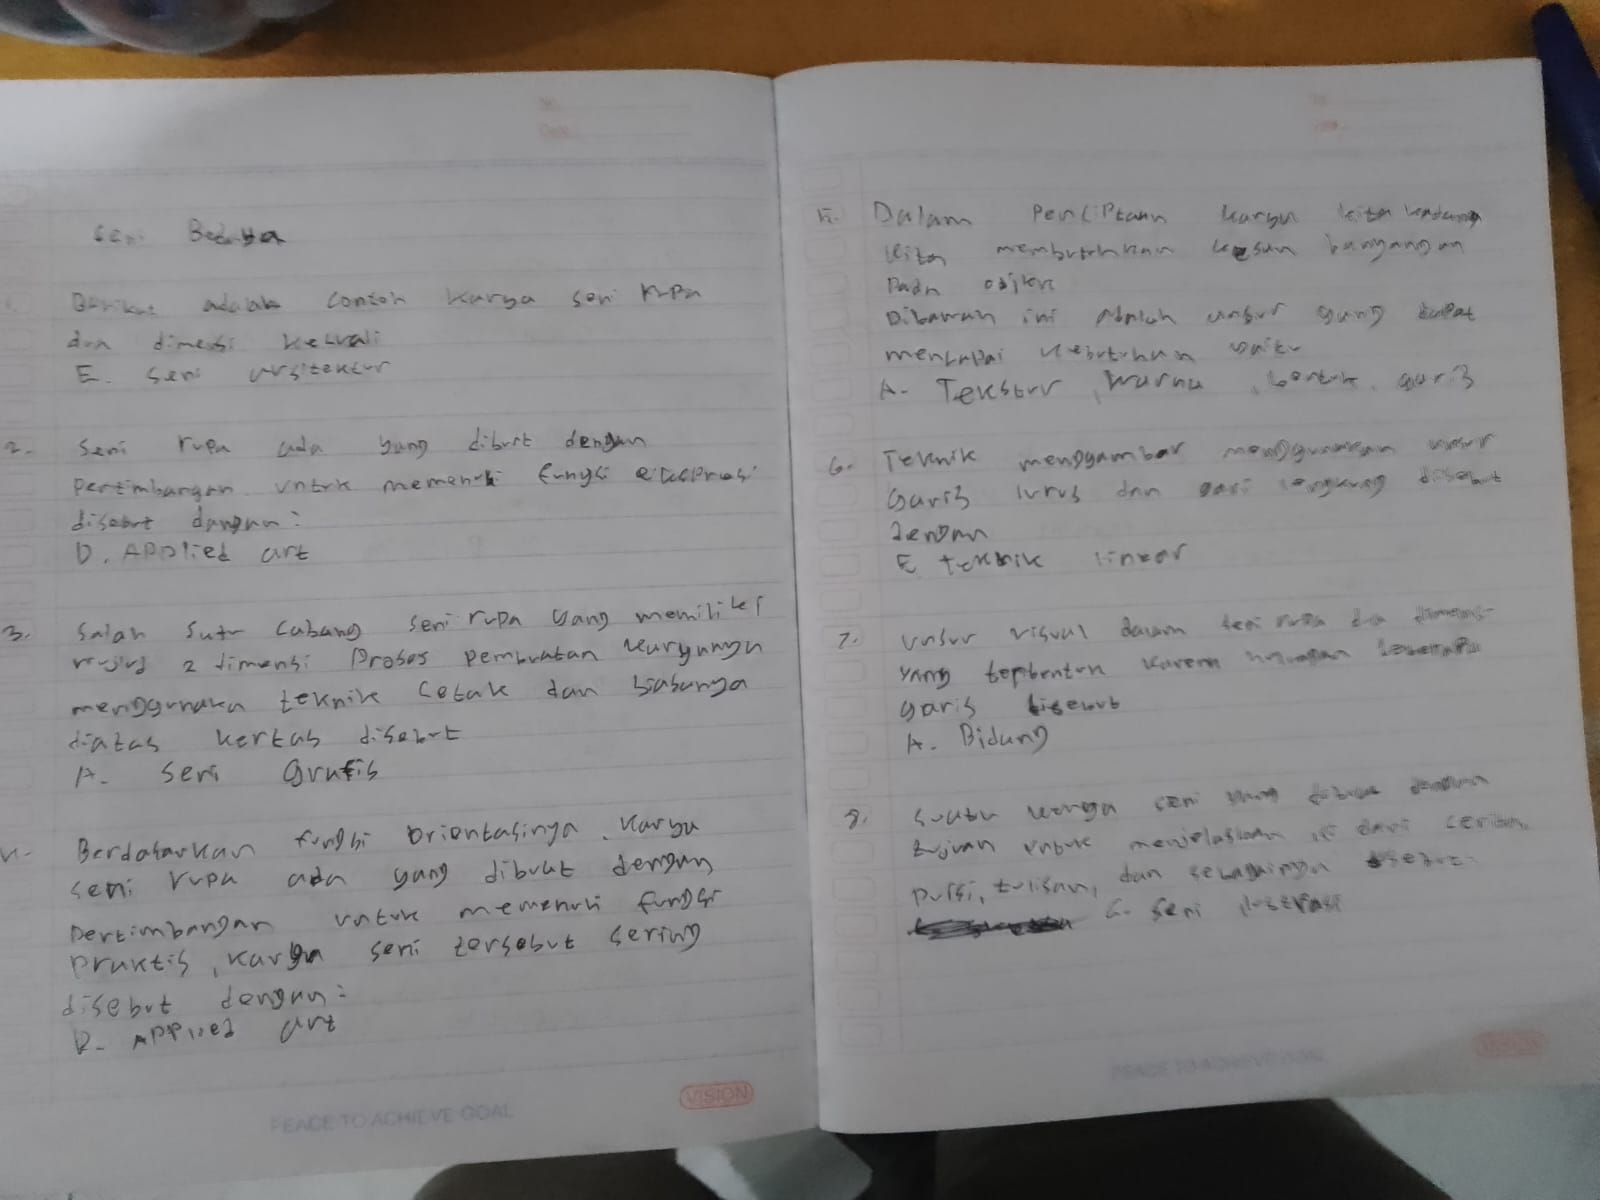 Seni Budaya
1. Berikut adalah contoh karya seni rupa
dua dimensi kecuali
E. Seni arsitektur
2. Seni rupa ada yang dibuat dengan
pertimbangan untuk memenuhi fungsi ekspresi
disebut dengan:
D. Applied art
3. Salah satu cabang seni rupa yang memiliki
wujud 2 dimensi Proses pembuatan karyanya
menggunakan teknik cetak dan biasanya
diatas kertas disebut
A. Seni grafis
4. Berdasarkan fungsi orientasinya, karya
seni rupa ada yang dibuat dengan
pertimbangan untuk memenuhi fungsi
praktis, karya seni tersebut sering
disebut dengan:
D. Applied art
PEACE TO ACHIEVE GOAL
VISION
5. Dalam penciptaan karya kita kadang
kita membutuhkan kesan bayangan
pada objek
Dibawah ini adalah unsur yang dapat
mencapai kebutuhan yaitu
A. Tekstur, warna, bentuk, garis
6. Teknik menggambar menggunakan unsur
garis lurus dan gari lengkung disebut
dengan
E teknik linear
7. Unsur visual dalam seni rupa dua dimensi
yang terbentuk karena hubungan beberapa
garis disebut
A. Bidang
8. Suatu karya seni yang dibuat dengan
tujuan untuk menjelaskan isi dari cerita,
puisi, tulisan, dan sebagainya disebut:
C. Seni ilustrasi
PEACE TO ACHIEVE GOAL
VISION